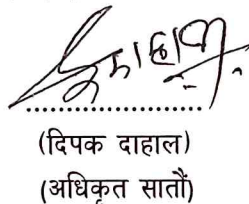 (दिपक दाहाल)
(अधिकृत सातौं)